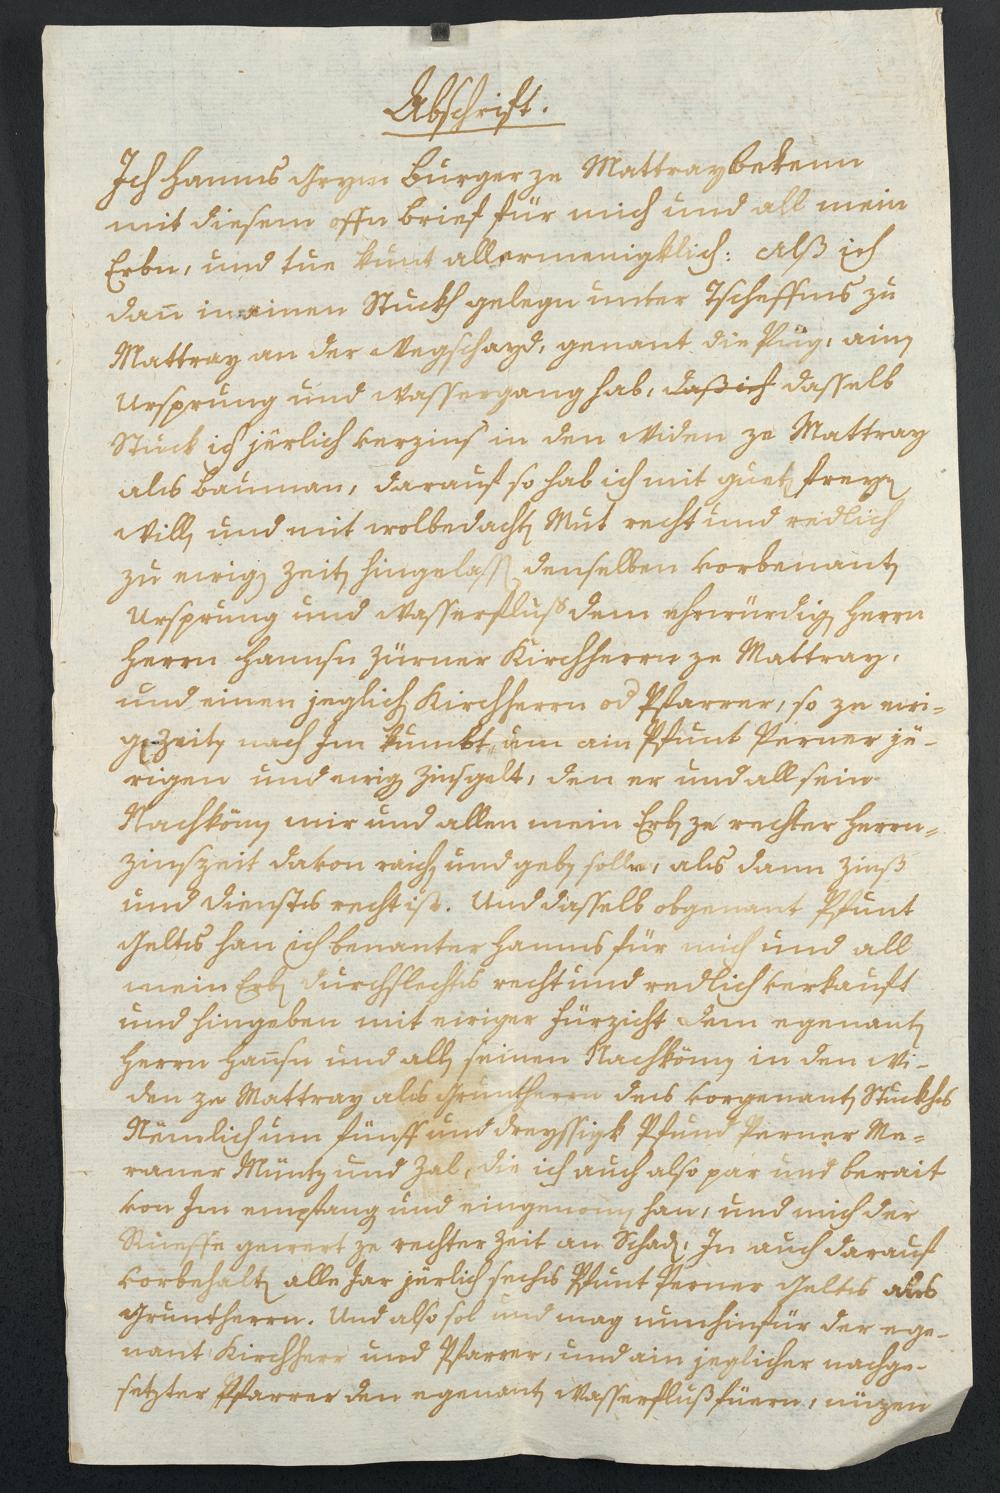 Abschrift.
Ich Hanns Grym Burger ze Mattray bekenn
mit diesem offn brief für mich und all mein
Erbn, und tue kunt allermenigklich: Alß ich
dan̄ in einen Stuckh gelegn unter Tscheffins zu
Mattray an der Wegschayd, genant die Püg, ain
Ursprung und Wassergang hab, daß ich dasselb
Stuck ich järlich verzins in den Widen ze Mattray
als Bauman, darauf so hab ich mit guetn freyn
Willn und mit wolbedachtn Mut recht und redlich
zu ewign Zeitn hingelassn denselben vorbenantn
Ursprung und Wasserfluß dem ehrwürdign Herrn
Herrn Hannsn Zürner Kirchherrn ze Mattray,
und einen jeglichn Kirchherrn od Pfarrer, so zu ewi-
gn Zeitn nach Im kumbt, um ain Pfunt Perner jä-
rigen und ewign Zinsgelt, den er und all sein
Nachkömn mir und allen mein Erbn ze rechter Herrn-
zinszeit davon raichn und gebn solln, als dann Zinß
und Dienstes recht ist. Und dasselb obgenant Pfunt
Geltes han ich benanter Hanns für mich und all
mein Erbn durchschlechts recht und redlich verkauft
und hingeben mit ewiger Fürzicht dem egenantn
Herrn Han̄sn und alln seinen Nachkömn in den Wi-
den ze Mattray als Gruntherrn des vorgenantn Stuckhs
Nemlich um fünff und dreyssigk Pfund Perner Me-
raner Müntz und Zal, die ich auch also par und berait
von Im empfang und eingenomn han, und mich der
gewert ze rechter Zeit an Schadn, In auch darauf
vorbehaltn alle Jar järlich sechs Pfunt Perner Geltes als
Gruntherrn. Und also sol und mag nunhinfür der ege-
nant Kirchherr und Pfarrer, und ain jeglicher nachge-
setzter Pfarrer den egenantn Wasserfluß füern, nüzen